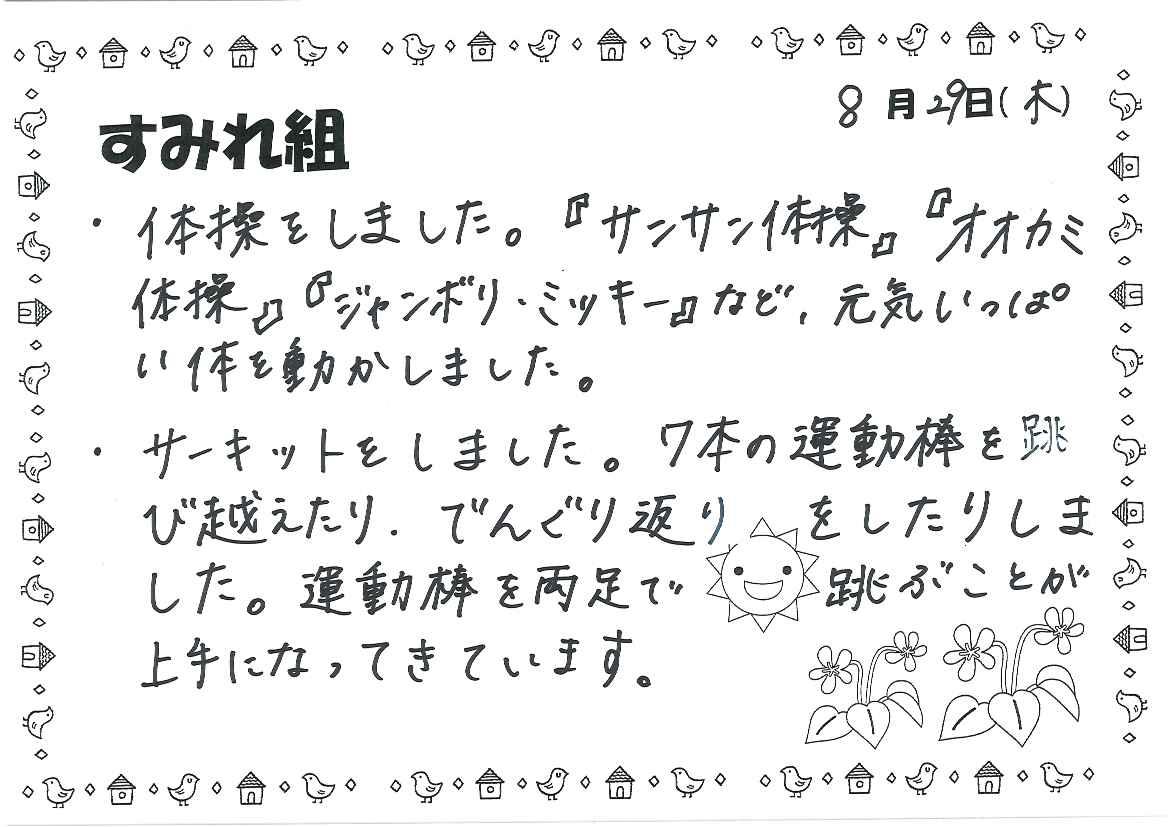 8月29日(木)
すみれ組
・体操をしました。『サンサン体操』『オオカミ
体操』『ジャンボリ・ミッキー』など、元気いっぱ
い体を動かしました。
・サーキットをしました。7本の運動棒を跳
び越えたり、でんぐり返りをしたりしま
した。運動棒を両足で跳ぶことが
上手になってきています。